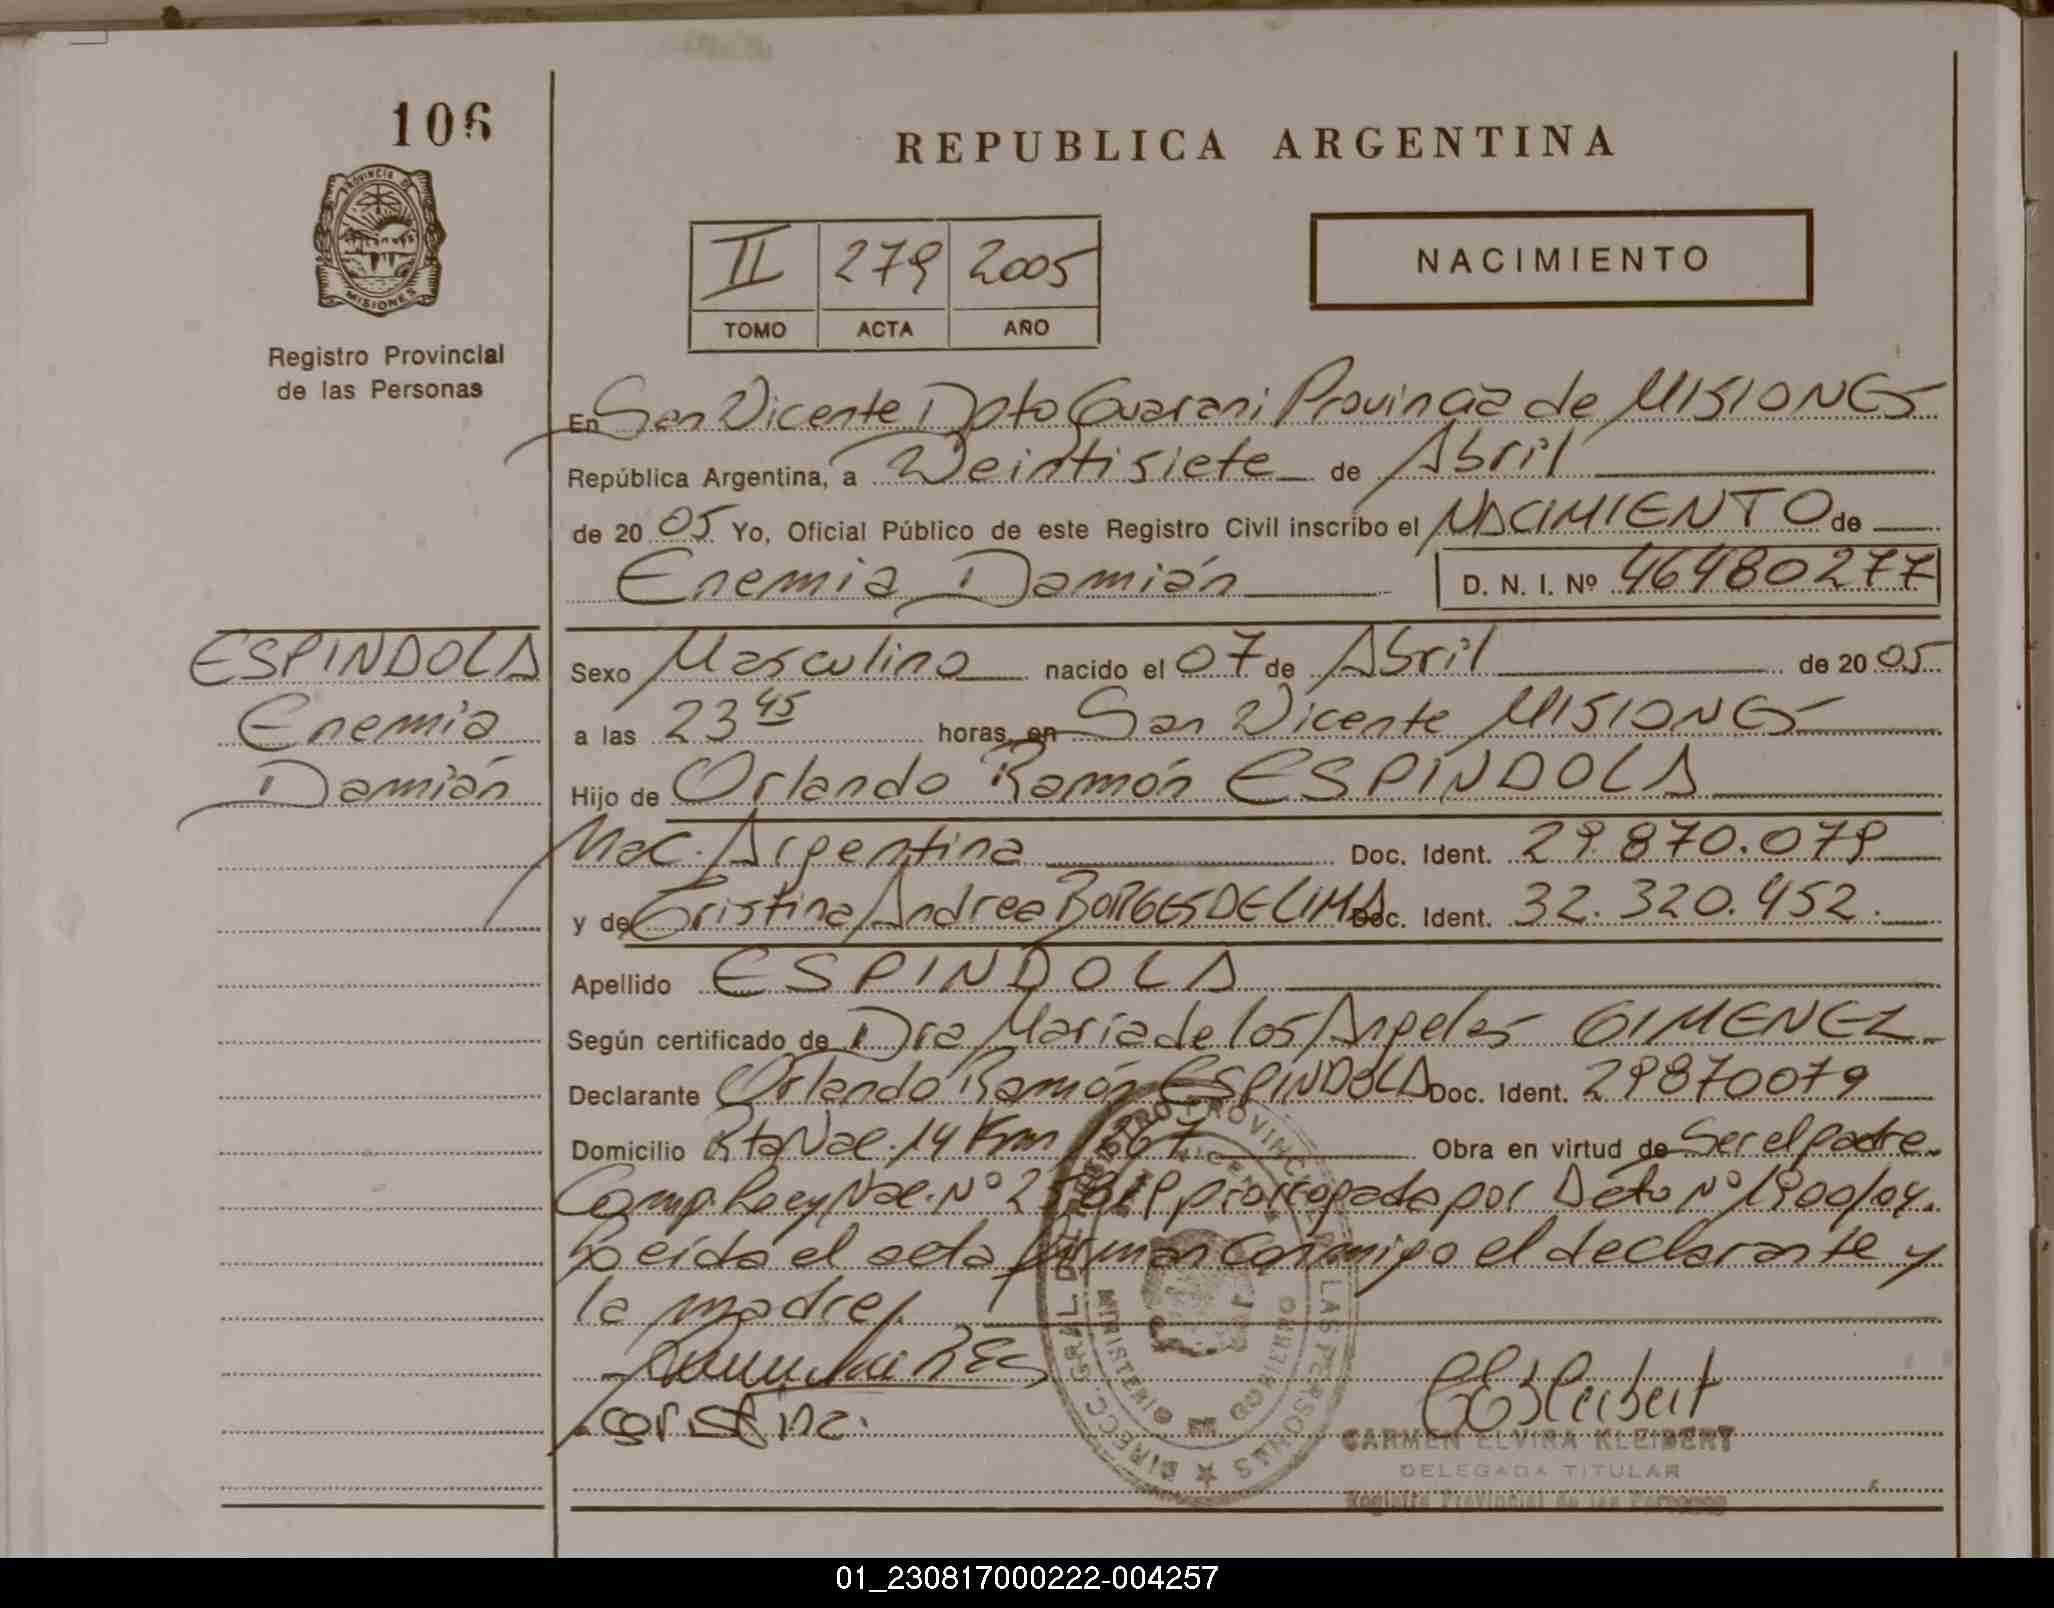 106
REPUBLICA ARGENTINA
PROVINCIA D
MISIONES
Registro Provincial
de las Personas
II 279 2005
TOMO ACTA AÑO
NACIMIENTO
En San Vicente Dpto Guarani Provincia de MISIONES
República Argentina, a Veintisiete de Abril
de 20 05 Yo, Oficial Público de este Registro Civil inscribo el NACIMIENTO de
Enemia Damián D. N. I. Nº 46480277
ESPINDOLA
Enemia
Damián
Sexo Masculino nacido el 07 de Abril de 20 05
a las 23 45 horas, en San Vicente MISIONES
Hijo de Orlando Ramón ESPINDOLA
Nac. Argentina Doc. Ident. 29.870.079
y de Cristina Andrea BORGES DE LIMA Doc. Ident. 32.320.452.
Apellido ESPINDOLA
Según certificado de Dra María de los Angeles GIMENEZ
Declarante Orlando Ramón ESPINDOLA Doc. Ident. 29870079
Domicilio Rta Nac. 14 Km 1267 Obra en virtud de Ser el padre.
Comp. Ley Nac. Nº 25819 prorrogada por Dcto Nº 1900/04.
Leida el acta firman conmigo el declarante y
la madre/.
cristina.
DIRECC. GRAL. DEL REGISTRO PROVINCIAL DE LAS PERSONAS
MINISTERIO DE GOBIERNO
CEKleibert
CARMEN ELVIRA KLEIBERT
DELEGADA TITULAR
Registro Provincial de las Personas
01_230817000222-004257